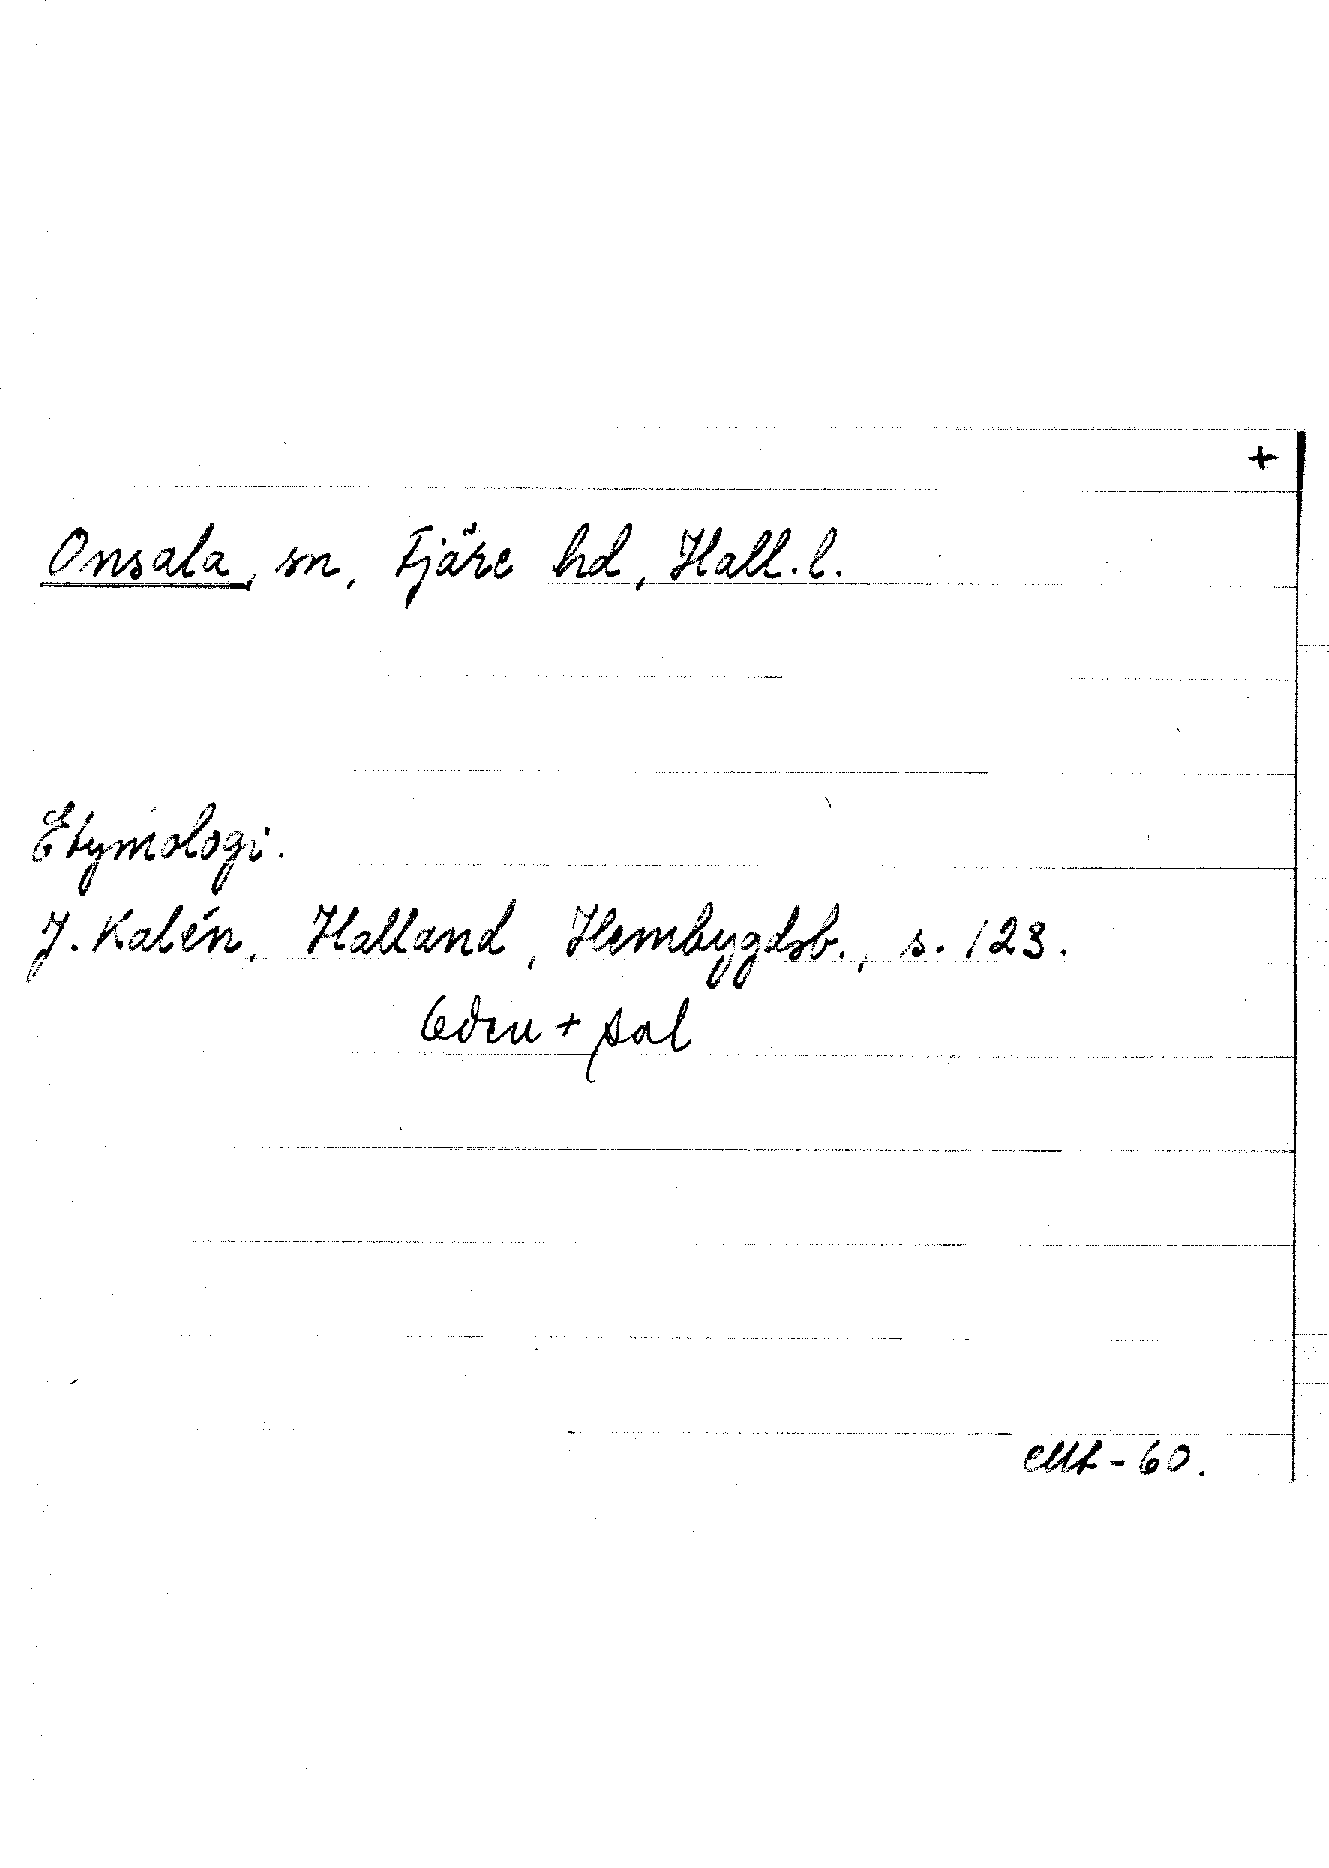 +
Onsala, sn, Fjäre hd, Hall. l.
Etymologi.
J. Kalén, Halland, Hembygdsb., s. 123.
Oden + sal
-60.